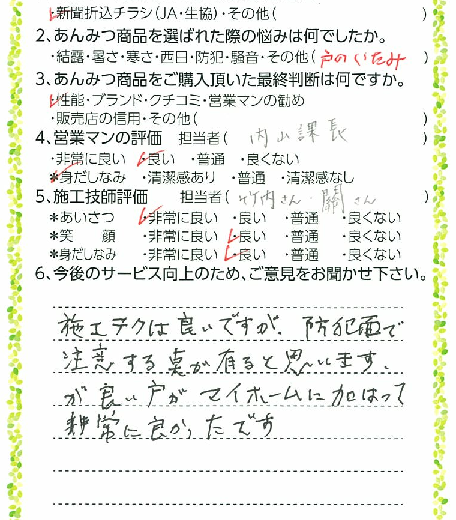 ・新聞折込チラシ(JA・生協)・その他( )
2.あんみつ商品を選ばれた際の悩みは何でしたか。
・結露・暑さ・寒さ・西日・防犯・騒音・その他(戸のいたみ)
3.あんみつ商品をご購入頂いた最終判断は何ですか。
・性能・ブランド・クチコミ・営業マンの勧め
・販売店の信用・その他( )
4.営業マンの評価 担当者( 内山課長 )
・非常に良い ・良い ・普通 ・良くない
*身だしなみ ・清潔感あり ・普通 ・清潔感なし
5.施工技師評価 担当者( 竹内さん・關さん )
*あいさつ ・非常に良い ・良い ・普通 ・良くない
*笑 顔 ・非常に良い ・良い ・普通 ・良くない
*身だしなみ ・非常に良い ・良い ・普通 ・良くない
6.今後のサービス向上のため、ご意見をお聞かせ下さい。
施工テクは良いですが、防犯面で
注意する点が有ると思います、
が良い戸がマイホームに加はって
非常に良かったです